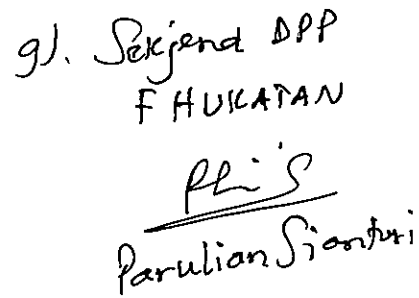 9). Sekjend DPP
F HUKATAN
Parulian Sianturi